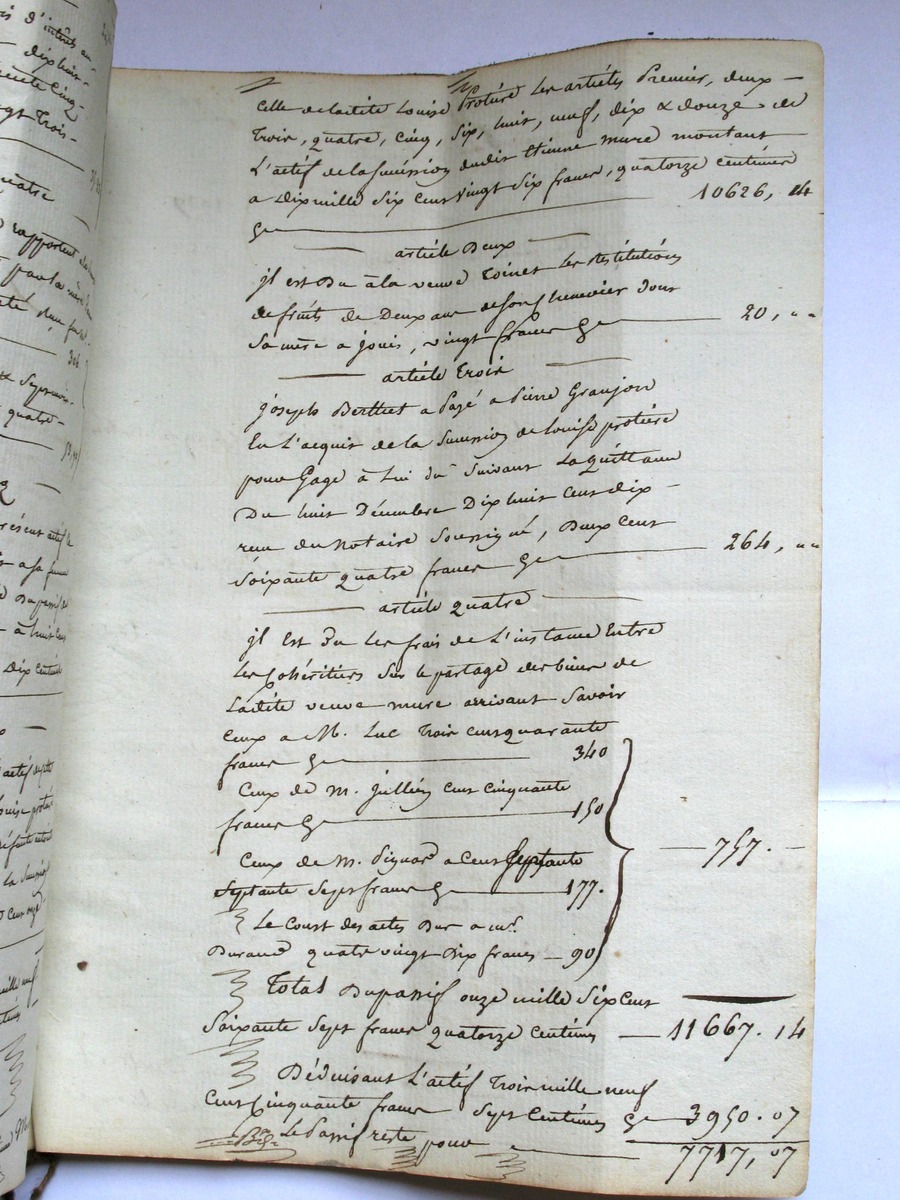 celle de ladite Louise Protière les articles Premier, deux
Trois, quatre, cinq, six, huit, neuf, dix & douze de
L'actif de la succession dudit Etienne mure montant
a dix mille Six Cens vingt six francs, quatorze centimes
10626, 14
article Deux
il est Du à la veuve Coinet les restitutions
de fruits de Deux ans de son chenevier dont
Sa mère a joui, vingt francs 20, " "
article Trois
joseph Berthet a Payé a Pierre Granjon
En L'acquit de la Succession de Louise protière
pour Gage à Lui dû Suivant La quittance
Du huit Décembre Dix huit cent dix
reçue du Notaire Soussigné, Deux Cent
Soixante quatre francs 264, " "
article quatre
il Est Du Les frais de L'instance Entre
Les Cohéritiers Sur le partage des biens de
Ladite veuve mure arrivant Savoir
Ceux a M. Luc Trois cens quarante
francs 340
Ceux de M. jullien cent cinquante
francs 150
Ceux de M. Pignard a Cent Septante
Septante Sept francs 177.
757.
Le Coust des actes Dus a me.
Durand quatre vingt Dix francs 90
Total Du passif onze mille Six Cent
Soixante Sept francs quatorze Centimes 11667. 14
Déduisant L'actif Trois mille neuf
Cent Cinquante francs Sept Centimes 3950. 07
Le Passif reste pour 7717, 07